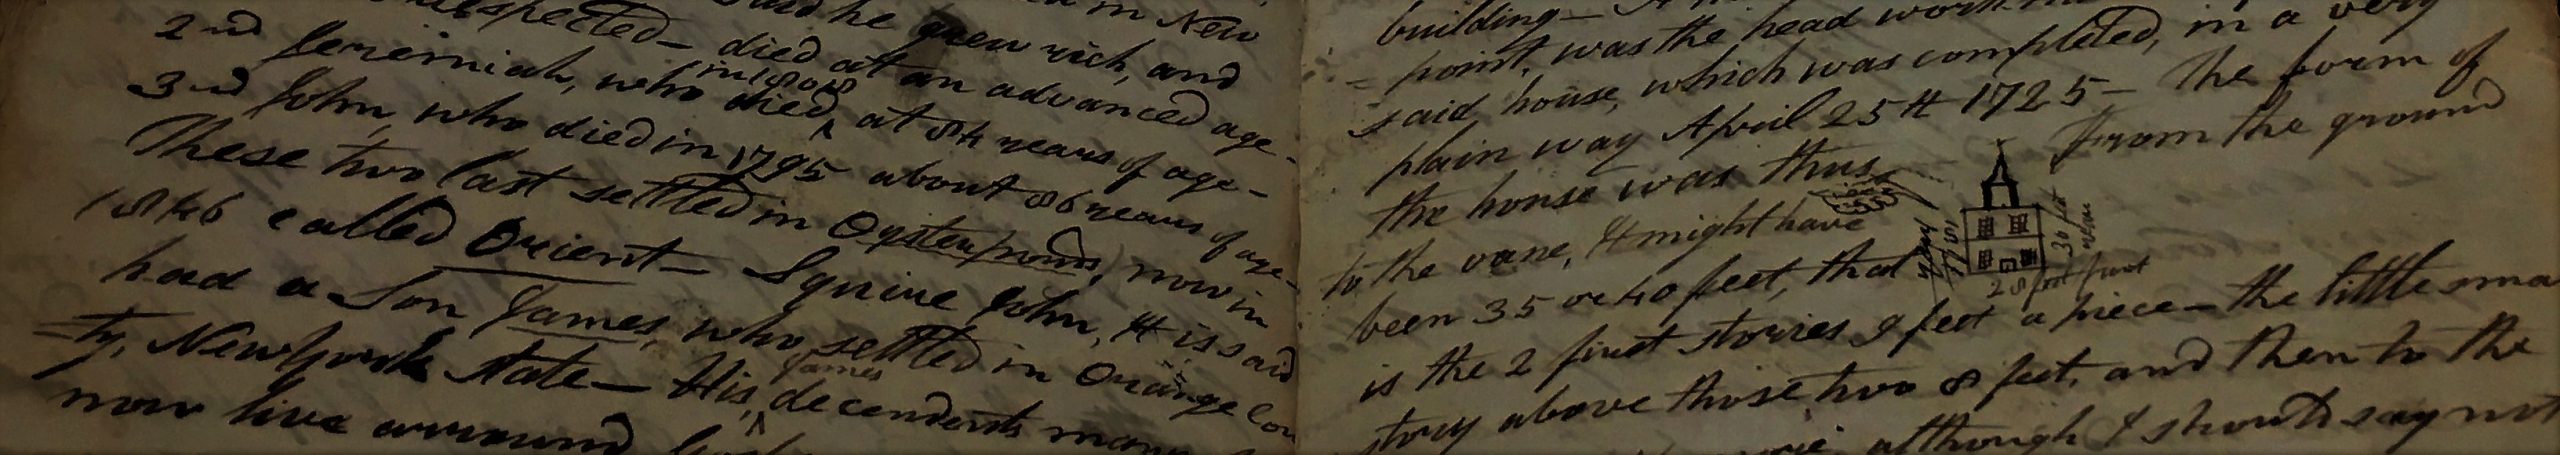 in New
respected— and he grew rich, and
2nd Jeremiah, who died at an advanced age—
in 1808
3rd John, who died, at 84 years of age—
These two last settled in Oysterponds, now in
1846 called Orient— Squire John, it is said
had a Son James, who settled in Orange Coun
=ty, Newyork State— His, decendents many
James
now live arround
building—
=point, was the head
said house, which was completed, in a very
plain way April 25th 1725— The form of
the house was thus From the ground
to the vane, it might have
been 35 or 40 feet, that
is the 2 first stories 9 feet a piece— the little
story above those two 8 feet, and then to the
although I should say not
year
1751
30 feet
28 feet front